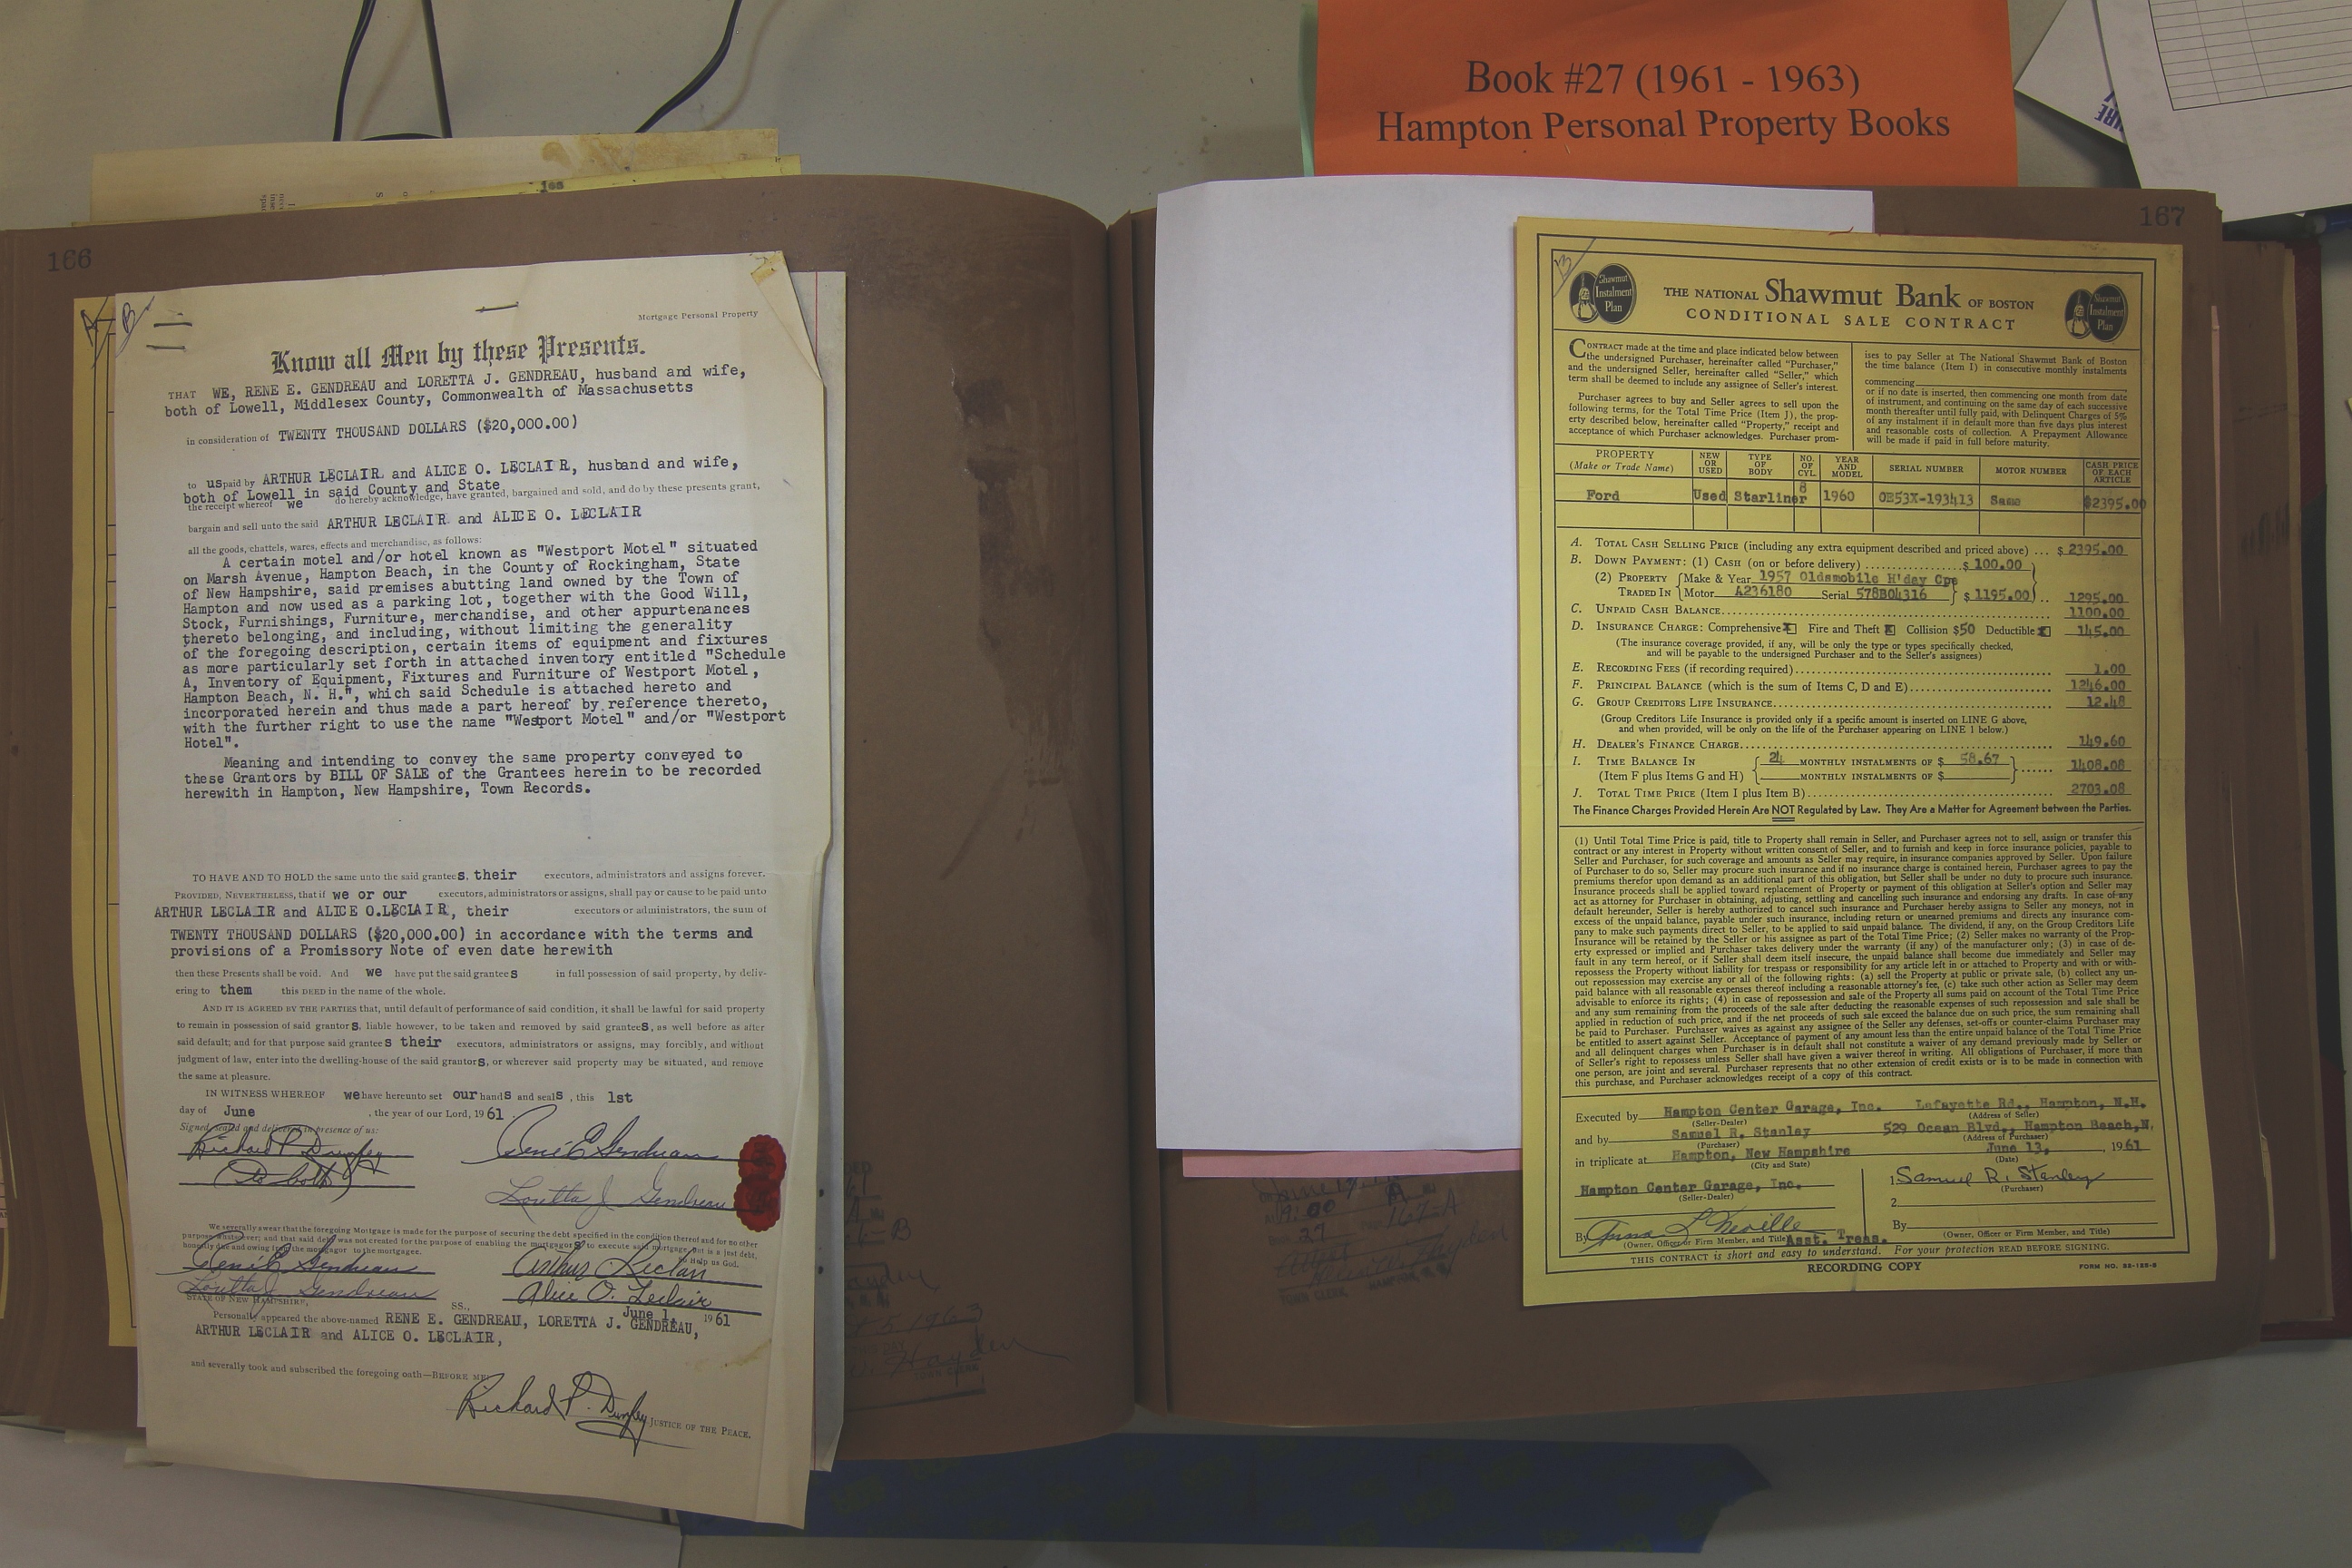 Book #27 (1961 - 1963)
Hampton Personal Property Books
166
Mortgage Personal Property
Know all Men by these Presents.
THAT WE, RENE E. GENDREAU and LORETTA J. GENDREAU, husband and wife,
both of Lowell, Middlesex County, Commonwealth of Massachusetts
in consideration of TWENTY THOUSAND DOLLARS ($20,000.00)
to us paid by ARTHUR LECLAIR and ALICE O. LECLAIR, husband and wife,
both of Lowell in said County and State
the receipt whereof we do hereby acknowledge, have granted, bargained and sold, and do by these presents grant,
bargain and sell unto the said ARTHUR LECLAIR and ALICE O. LECLAIR
all the goods, chattels, wares, effects and merchandise, as follows:
A certain motel and/or hotel known as "Westport Motel" situated
on Marsh Avenue, Hampton Beach, in the County of Rockingham, State
of New Hampshire, said premises abutting land owned by the Town of
Hampton and now used as a parking lot, together with the Good Will,
Stock, Furnishings, Furniture, merchandise, and other appurtenances
thereto belonging, and including, without limiting the generality
of the foregoing description, certain items of equipment and fixtures
as more particularly set forth in attached inventory entitled "Schedule
A, Inventory of Equipment, Fixtures and Furniture of Westport Motel,
Hampton Beach, N. H.", which said Schedule is attached hereto and
incorporated herein and thus made a part hereof by reference thereto,
with the further right to use the name "Westport Motel" and/or "Westport
Hotel".
Meaning and intending to convey the same property conveyed to
these Grantors by BILL OF SALE of the Grantees herein to be recorded
herewith in Hampton, New Hampshire, Town Records.
TO HAVE AND TO HOLD the same unto the said grantees, their executors, administrators and assigns forever.
PROVIDED, NEVERTHELESS, that if we or our executors, administrators or assigns, shall pay or cause to be paid unto
ARTHUR LECLAIR and ALICE O.LECLAIR, their executors or administrators, the sum of
TWENTY THOUSAND DOLLARS ($20,000.00) in accordance with the terms and
provisions of a Promissory Note of even date herewith
then these Presents shall be void. And we have put the said grantees in full possession of said property, by deliv-
ering to them this DEED in the name of the whole.
AND IT IS AGREED BY THE PARTIES that, until default of performance of said condition, it shall be lawful for said property
to remain in possession of said grantors, liable however, to be taken and removed by said grantees, as well before as after
said default; and for that purpose said grantees their executors, administrators or assigns, may forcibly, and without
judgment of law, enter into the dwelling-house of the said grantors, or wherever said property may be situated, and remove
the same at pleasure.
IN WITNESS WHEREOF we have hereunto set our hands and seals, this 1st
day of June , the year of our Lord, 1961
Signed, sealed and delivered in presence of us:
Richard P. Dunfey
To both
Rene E Gendreau
Loretta J Gendreau
We severally swear that the foregoing Mortgage is made for the purpose of securing the debt specified in the condition thereof and for no other
purpose whatsoever; and that said debt was not created for the purpose of enabling the mortgagors to execute said mortgage, but is a just debt,
honestly due and owing from the mortgagor to the mortgagee. So Help us God.
Rene E Gendreau Arthur Leclair
Loretta J Gendreau Alice O. Leclair
STATE OF NEW HAMPSHIRE, SS., June 1, 1961
Personally appeared the above-named RENE E. GENDREAU, LORETTA J. GENDREAU,
ARTHUR LECLAIR and ALICE O. LECLAIR,
and severally took and subscribed the foregoing oath—BEFORE ME
Richard P. Dunfey JUSTICE OF THE PEACE.
167
B
Shawmut Instalment Plan
THE NATIONAL Shawmut Bank OF BOSTON
CONDITIONAL SALE CONTRACT
Shawmut Instalment Plan
CONTRACT made at the time and place indicated below between
the undersigned Purchaser, hereinafter called "Purchaser,"
and the undersigned Seller, hereinafter called "Seller," which
term shall be deemed to include any assignee of Seller's interest.
Purchaser agrees to buy and Seller agrees to sell upon the
following terms, for the Total Time Price (Item J), the prop-
erty described below, hereinafter called "Property," receipt and
acceptance of which Purchaser acknowledges. Purchaser prom-
ises to pay Seller at The National Shawmut Bank of Boston
the time balance (Item I) in consecutive monthly instalments
commencing
or if no date is inserted, then commencing one month from date
of instrument, and continuing on the same day of each successive
month thereafter until fully paid, with Delinquent Charges of 5%
of any instalment if in default more than five days plus interest
and reasonable costs of collection. A Prepayment Allowance
will be made if paid in full before maturity.
PROPERTY (Make or Trade Name) NEW OR USED TYPE OF BODY NO. OF CYL. YEAR AND MODEL SERIAL NUMBER MOTOR NUMBER CASH PRICE OF EACH ARTICLE
Ford Used Starliner 8 1960 0B53X-193413 Same $2395.00
A. TOTAL CASH SELLING PRICE (including any extra equipment described and priced above) ... $ 2395.00
B. DOWN PAYMENT: (1) CASH (on or before delivery) ........ $ 100.00
(2) PROPERTY TRADED IN Make & Year 1957 Oldsmobile H'day Cpe
Motor A236180 Serial 578B04316 $ 1195.00 .. 1295.00
C. UNPAID CASH BALANCE ........ 1100.00
D. INSURANCE CHARGE: Comprehensive X Fire and Theft X Collision $50 Deductible X 145.00
(The insurance coverage provided, if any, will be only the type or types specifically checked,
and will be payable to the undersigned Purchaser and to the Seller's assignees)
E. RECORDING FEES (if recording required) ........ 1.00
F. PRINCIPAL BALANCE (which is the sum of Items C, D and E) ........ 1246.00
G. GROUP CREDITORS LIFE INSURANCE ........ 12.48
(Group Creditors Life Insurance is provided only if a specific amount is inserted on LINE G above,
and when provided, will be only on the life of the Purchaser appearing on LINE 1 below.)
H. DEALER'S FINANCE CHARGE ........ 149.60
I. TIME BALANCE IN 24 MONTHLY INSTALMENTS OF $ 58.67
(Item F plus Items G and H) MONTHLY INSTALMENTS OF $ ...... 1408.08
J. TOTAL TIME PRICE (Item I plus Item B) ........ 2703.08
The Finance Charges Provided Herein Are NOT Regulated by Law. They Are a Matter for Agreement between the Parties.
(1) Until Total Time Price is paid, title to Property shall remain in Seller, and Purchaser agrees not to sell, assign or transfer this
contract or any interest in Property without written consent of Seller, and to furnish and keep in force insurance policies, payable to
Seller and Purchaser, for such coverage and amounts as Seller may require, in insurance companies approved by Seller. Upon failure
of Purchaser to do so, Seller may procure such insurance and if no insurance charge is contained herein, Purchaser agrees to pay the
premiums therefor upon demand as an additional part of this obligation, but Seller shall be under no duty to procure such insurance.
Insurance proceeds shall be applied toward replacement of Property or payment of this obligation at Seller's option and Seller may
act as attorney for Purchaser in obtaining, adjusting, settling and cancelling such insurance and endorsing any drafts. In case of any
default hereunder, Seller is hereby authorized to cancel such insurance and Purchaser hereby assigns to Seller any moneys, not in
excess of the unpaid balance, payable under such insurance, including return or unearned premiums and directs any insurance com-
pany to make such payments direct to Seller, to be applied to said unpaid balance. The dividend, if any, on the Group Creditors Life
Insurance will be retained by the Seller or his assignee as part of the Total Time Price; (2) Seller makes no warranty of the Prop-
erty expressed or implied and Purchaser takes delivery under the warranty (if any) of the manufacturer only; (3) in case of de-
fault in any term hereof, or if Seller shall deem itself insecure, the unpaid balance shall become due immediately and Seller may
repossess the Property without liability for trespass or responsibility for any article left in or attached to Property and with or with-
out repossession may exercise any or all of the following rights: (a) sell the Property at public or private sale, (b) collect any un-
paid balance with all reasonable expenses thereof including a reasonable attorney's fee, (c) take such other action as Seller may deem
advisable to enforce its rights; (4) in case of repossession and sale of the Property all sums paid on account of the Total Time Price
and any sum remaining from the proceeds of the sale after deducting the reasonable expenses of such repossession and sale shall be
applied in reduction of such price, and if the net proceeds of such sale exceed the balance due on such price, the sum remaining shall
be paid to Purchaser. Purchaser waives as against any assignee of the Seller any defenses, set-offs or counter-claims Purchaser may
be entitled to assert against Seller. Acceptance of payment of any amount less than the entire unpaid balance of the Total Time Price
and all delinquent charges when Purchaser is in default shall not constitute a waiver of any demand previously made by Seller or
of Seller's right to repossess unless Seller shall have given a waiver thereof in writing. All obligations of Purchaser, if more than
one person, are joint and several. Purchaser represents that no other extension of credit exists or is to be made in connection with
this purchase, and Purchaser acknowledges receipt of a copy of this contract.
Executed by Hampton Center Garage, Inc. Lafayette Rd., Hampton, N.H.
(Seller-Dealer) (Address of Seller)
and by Samuel R. Stanley 529 Ocean Blvd., Hampton Beach, N.
(Purchaser) (Address of Purchaser)
in triplicate at Hampton, New Hampshire June 13, 1961
(City and State) (Date)
Hampton Center Garage, Inc. 1 Samuel R. Stanley
(Seller-Dealer) (Purchaser)
2
By Anna L Neville Asst. Treas. By
(Owner, Officer or Firm Member, and Title) (Owner, Officer or Firm Member, and Title)
THIS CONTRACT is short and easy to understand. For your protection READ BEFORE SIGNING.
RECORDING COPY FORM NO. 22-125-2
9:00 A
27 167-A
TOWN CLERK HAMPTON, N. H.
1963
Hayden
TOWN CLERK